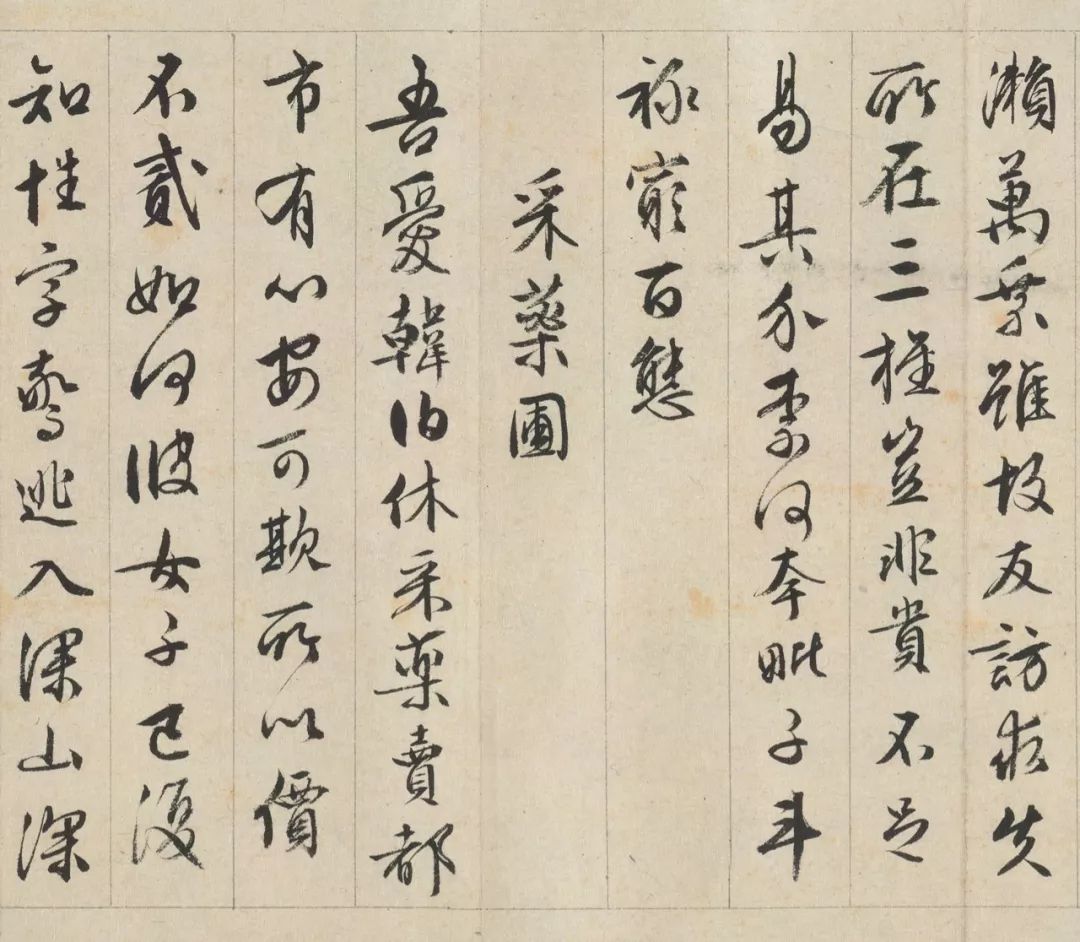 瀨萬乘雖故友訪求失
所在三旌豈非貴不足
易其介柰何夸毗子斗
祿窮百態
采藥圃
吾愛韓伯休采藥賣都
市有心安可欺所以價
不貳如何彼女子已復
知性字驚逃入深山深